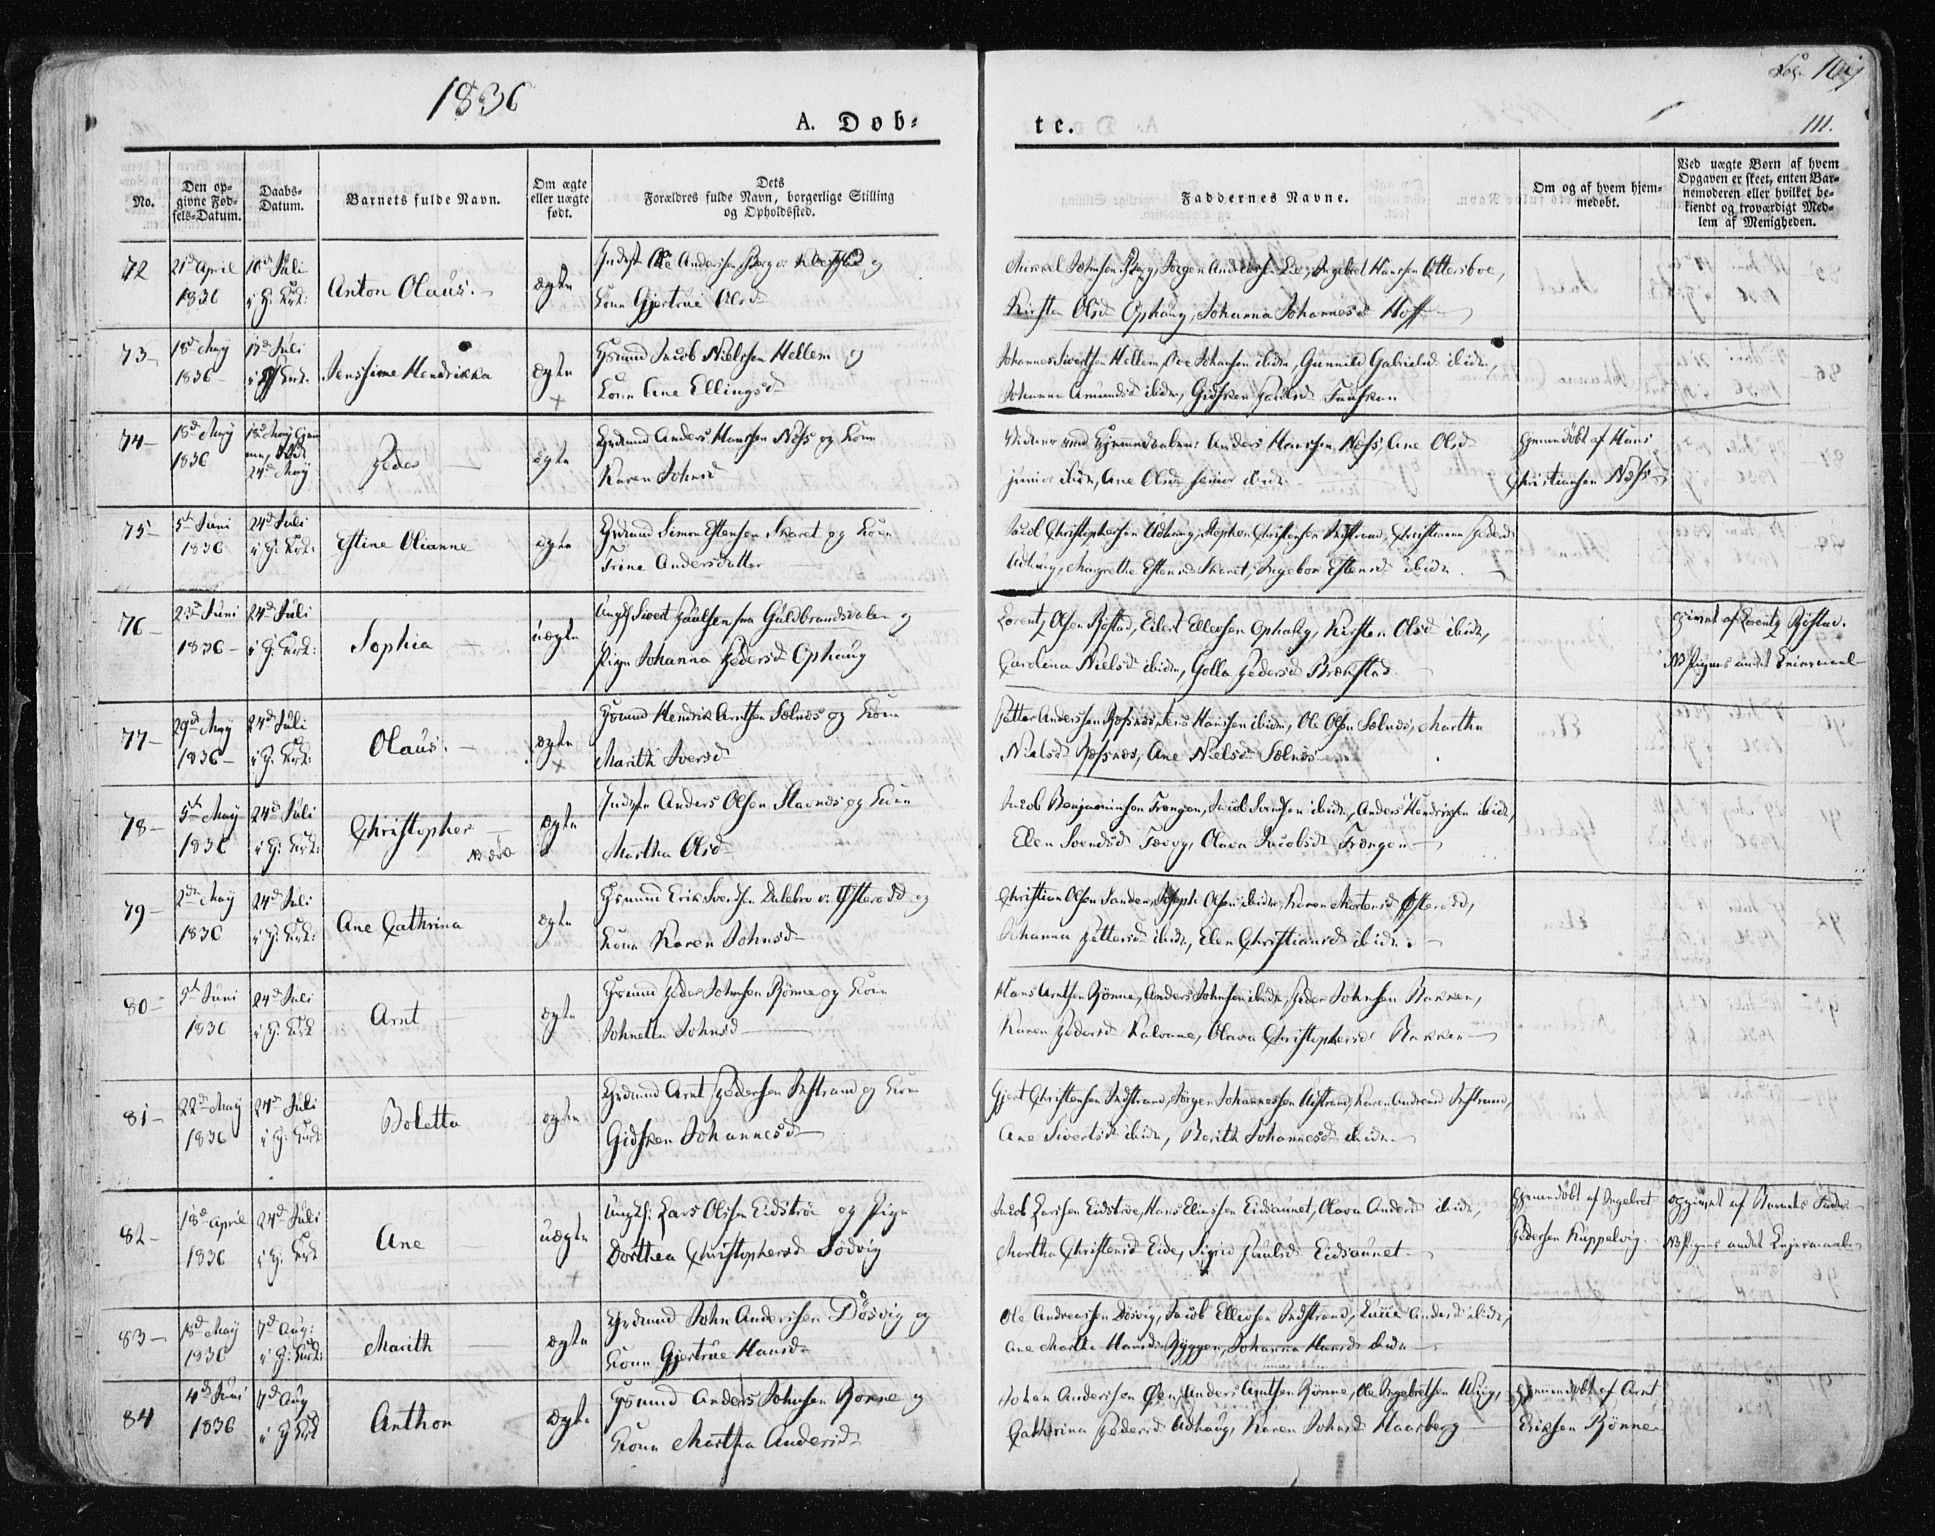 1836
A. Døb-
te.
Fol. 109
111.
No.
Den op-
givne Fød-
sels-Datum.
Daabs-
Datum.
Barnets fulde Navn.
Om ægte
eller uægte
født.
Dets
Forældres fulde Navn, borgerlige Stilling
og Opholdssted.
Faddernes Navne.
Om og af hvem hjem-
medøbt.
Ved uægte Børn af hvem
Opgaven er skeet, enten Bar-
nemoderen eller hvilket be-
kiendt og troværdigt Med-
lem af Menigheden.
72
21de April
1836
10de Juli
i H: Kirk:
Anton Olaus.
ægte
Indst Ole Andersen Berg og
Kone Gjertrue Olsd
Mikkel Johnsen Berg, Jørgen Andersen Lie, Ingebret Hansen Ottersboe,
Kirsten Olsd Ophaug, Johanna Johannesd Hoff
73
18de May
1836
17de Juli
i Kirk:
Jenssine Hendrikka
ægte
Grmd Jacob Nielssen Hellem og
Kone Ane Ellingsd
Johannes Sivertsen Hellem, Ove Johansen ibidm, Gunnild Gabrielsd ibidm,
Johanna Amundsd ibidm, Gidsken Paulsd
74
18de May
1836
18de May
24de May
Peder
ægte
Grdmd Anders Hanssen Næss og Kone
Karen Johnsd
Anders Hanssen Næss, Ane Olsd
junior ibidm, Ane Olsd senior ibidm
Hjemmedøbt af Hans
Christiansen Næss
75
5te Juni
1836
24de Juli
i H: Kirk:
Estine Olianne
ægte
Grdmd Simon Estensen Skaret og Kone
Trine Andersdatter
Jacob Christophersen Udhaug, Stephen Christensen Indstrand, Christianna Pedersd
Udhaug, Margrethe Estensd Skaret, Ingebor Estensd ibidm.
76
23de Juni
1836
24de Juli
i H: Kirk:
Sophia
uægte
Ungk Sivert Paulsen fra Guldbrandsdalen og
Pige Johanna Pedersd Ophaug
Lorentz Olsen Røstad, Eilert Ellevsen Ophaug, Kirsten Olsd ibidm,
Carolina Nielsd ibidm, Golla Pedersd Brækstad
Opgivet af Lorentz Røstad.
NB Pigens andet Leiermaal
77
29de May
1836
24de Juli
i H: Kirk:
Olaus.
ægte
Gsmd Hendrik Arntsen Solnæs og Kone
Marith Iversd
Petter Anderssen Røssnæs, Jens Hanssen ibidm, Ole Olsen Solnæs, Martha
Nielsd Røssnæs, Ane Nielsd Solnæs
78
5te May
1836
24de Juli
i H: Kirk:
Christopher
ægte
Indst Anders Olsen Stavnæs og Kone
Martha Olsd
Jacob Benjaminsen Trængen, Jacob Svendsen ibidm, Anders Hendriksen ibidm,
Elen Svendsd, Olava Jacobsd Trængen
79
2de May
1836
24de Juli
i H: Kirk:
Ane Cathrina
ægte
Gsmd Erik Svendsen Dalebro v: Østeraad og
Kone Karen Johnsd
Christian Olsen Sanden, Joseph Olsen ibidm, Karen Mortensd Østeraad,
Johanna Pettersd ibidm, Elen Christiansd ibidm.
80
5te Juni
1836
24de Juli
i H: Kirk
Arnt
ægte
Gsmd Peder Johnsen Rønne og Kone
Johnetta Johnsd
Hans Arntsen Rønne, Anders Johnsen ibidm, Peder Johnsen Bakken,
Karen Pedersd Kalvane, Olava Christophersd Bakken
81
22de May
1836
24de Juli
i H: Kirk:
Boletta
ægte
Grdmd Arnt Pedersen Indstrand og Kone
Gidsken Johannesd
Gjert Christensen Indstrand, Jørgen Johannessen Udstrand, Karen Andreasd Indstrand,
Ane Sivertsd ibidm, Berith Johannesd ibidm
82
18de April
1836
24de Juli
i H: Kirk:
Ane
uægte
Ungk: Lars Olsen Eidstrøe og Pige
Dorthea Christophersd Sødvig
Jacob Larssen Eidstrøe, Hans Eliassen Eidsaunet, Olava Andersd ibidm,
Martha Christensd Eide, Sigrid Paulsd Eidsaunet
Hjemmedøbt af Ingebret
Pedersen Kuppelvig
Opgivet af Barnets Fader
NB Pigens andet Leiermaal
83
18de May
1836
7de Aug:
i H: Kirk:
Marith
ægte
Grdmd John Anderssen Døsvig og
Kone Gjertrue Hansd
Ole Andreassen Døsvig, Jacob Ellevsen Indstrand, Andersd ibidm,
Ane Martha Hansd Ryggen, Johanna Hansd ibidm
84
4de Juni
1836
7de Aug
i H: Kirk
Anthon
ægte
Gsmd Anders Johnsen Rønne og
Kone Martha Andersd
Johan Anderssen Øen, Anders Arntsen Rønne, Ole Ingebretsen Wiig,
Cathrina Pedersd Udhaug, Karen Johnsd Haarberg
Hjemmedøbt af Arnt
Eriksen Rønne